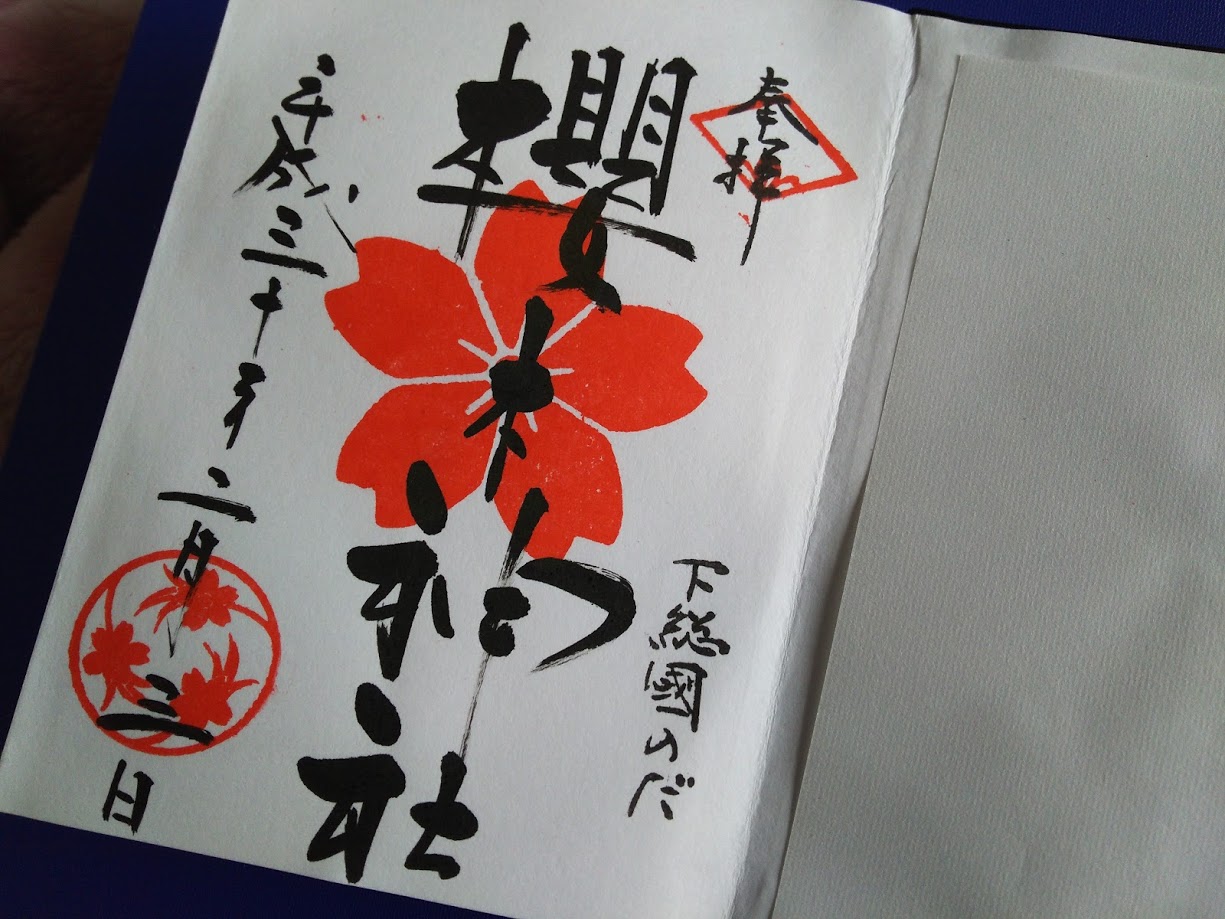 奉拝
下総國のだ
櫻木神社
平成三十年二月三日